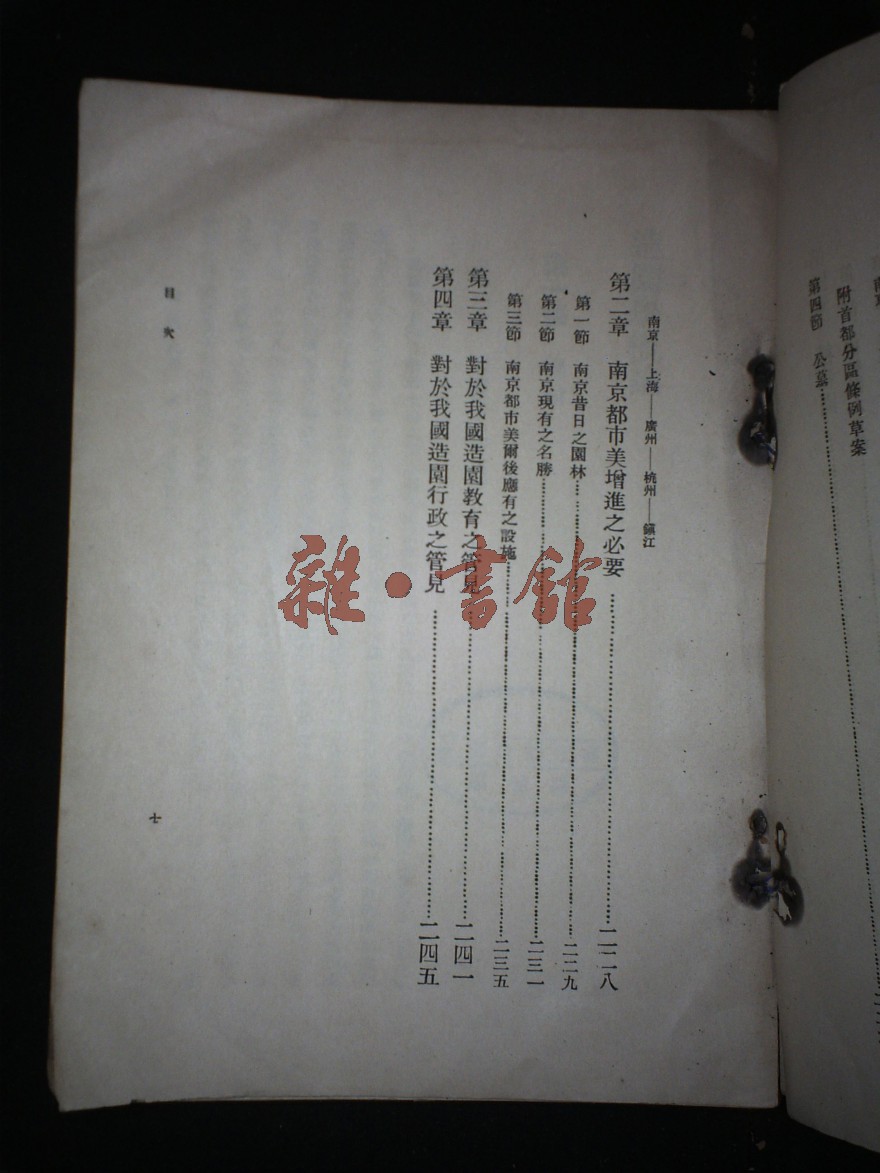 第四節　公墓
附首都分區條例草案
南京——上海——廣州——杭州——鎮江
第二章　南京都市美增進之必要……二二八
第一節　南京昔日之園林……二二九
第二節　南京現有之名勝……二三一
第三節　南京都市美爾後應有之設施……二三五
第三章　對於我國造園教育之管見……二四一
第四章　對於我國造園行政之管見……二四五
目次
七
雜·書館